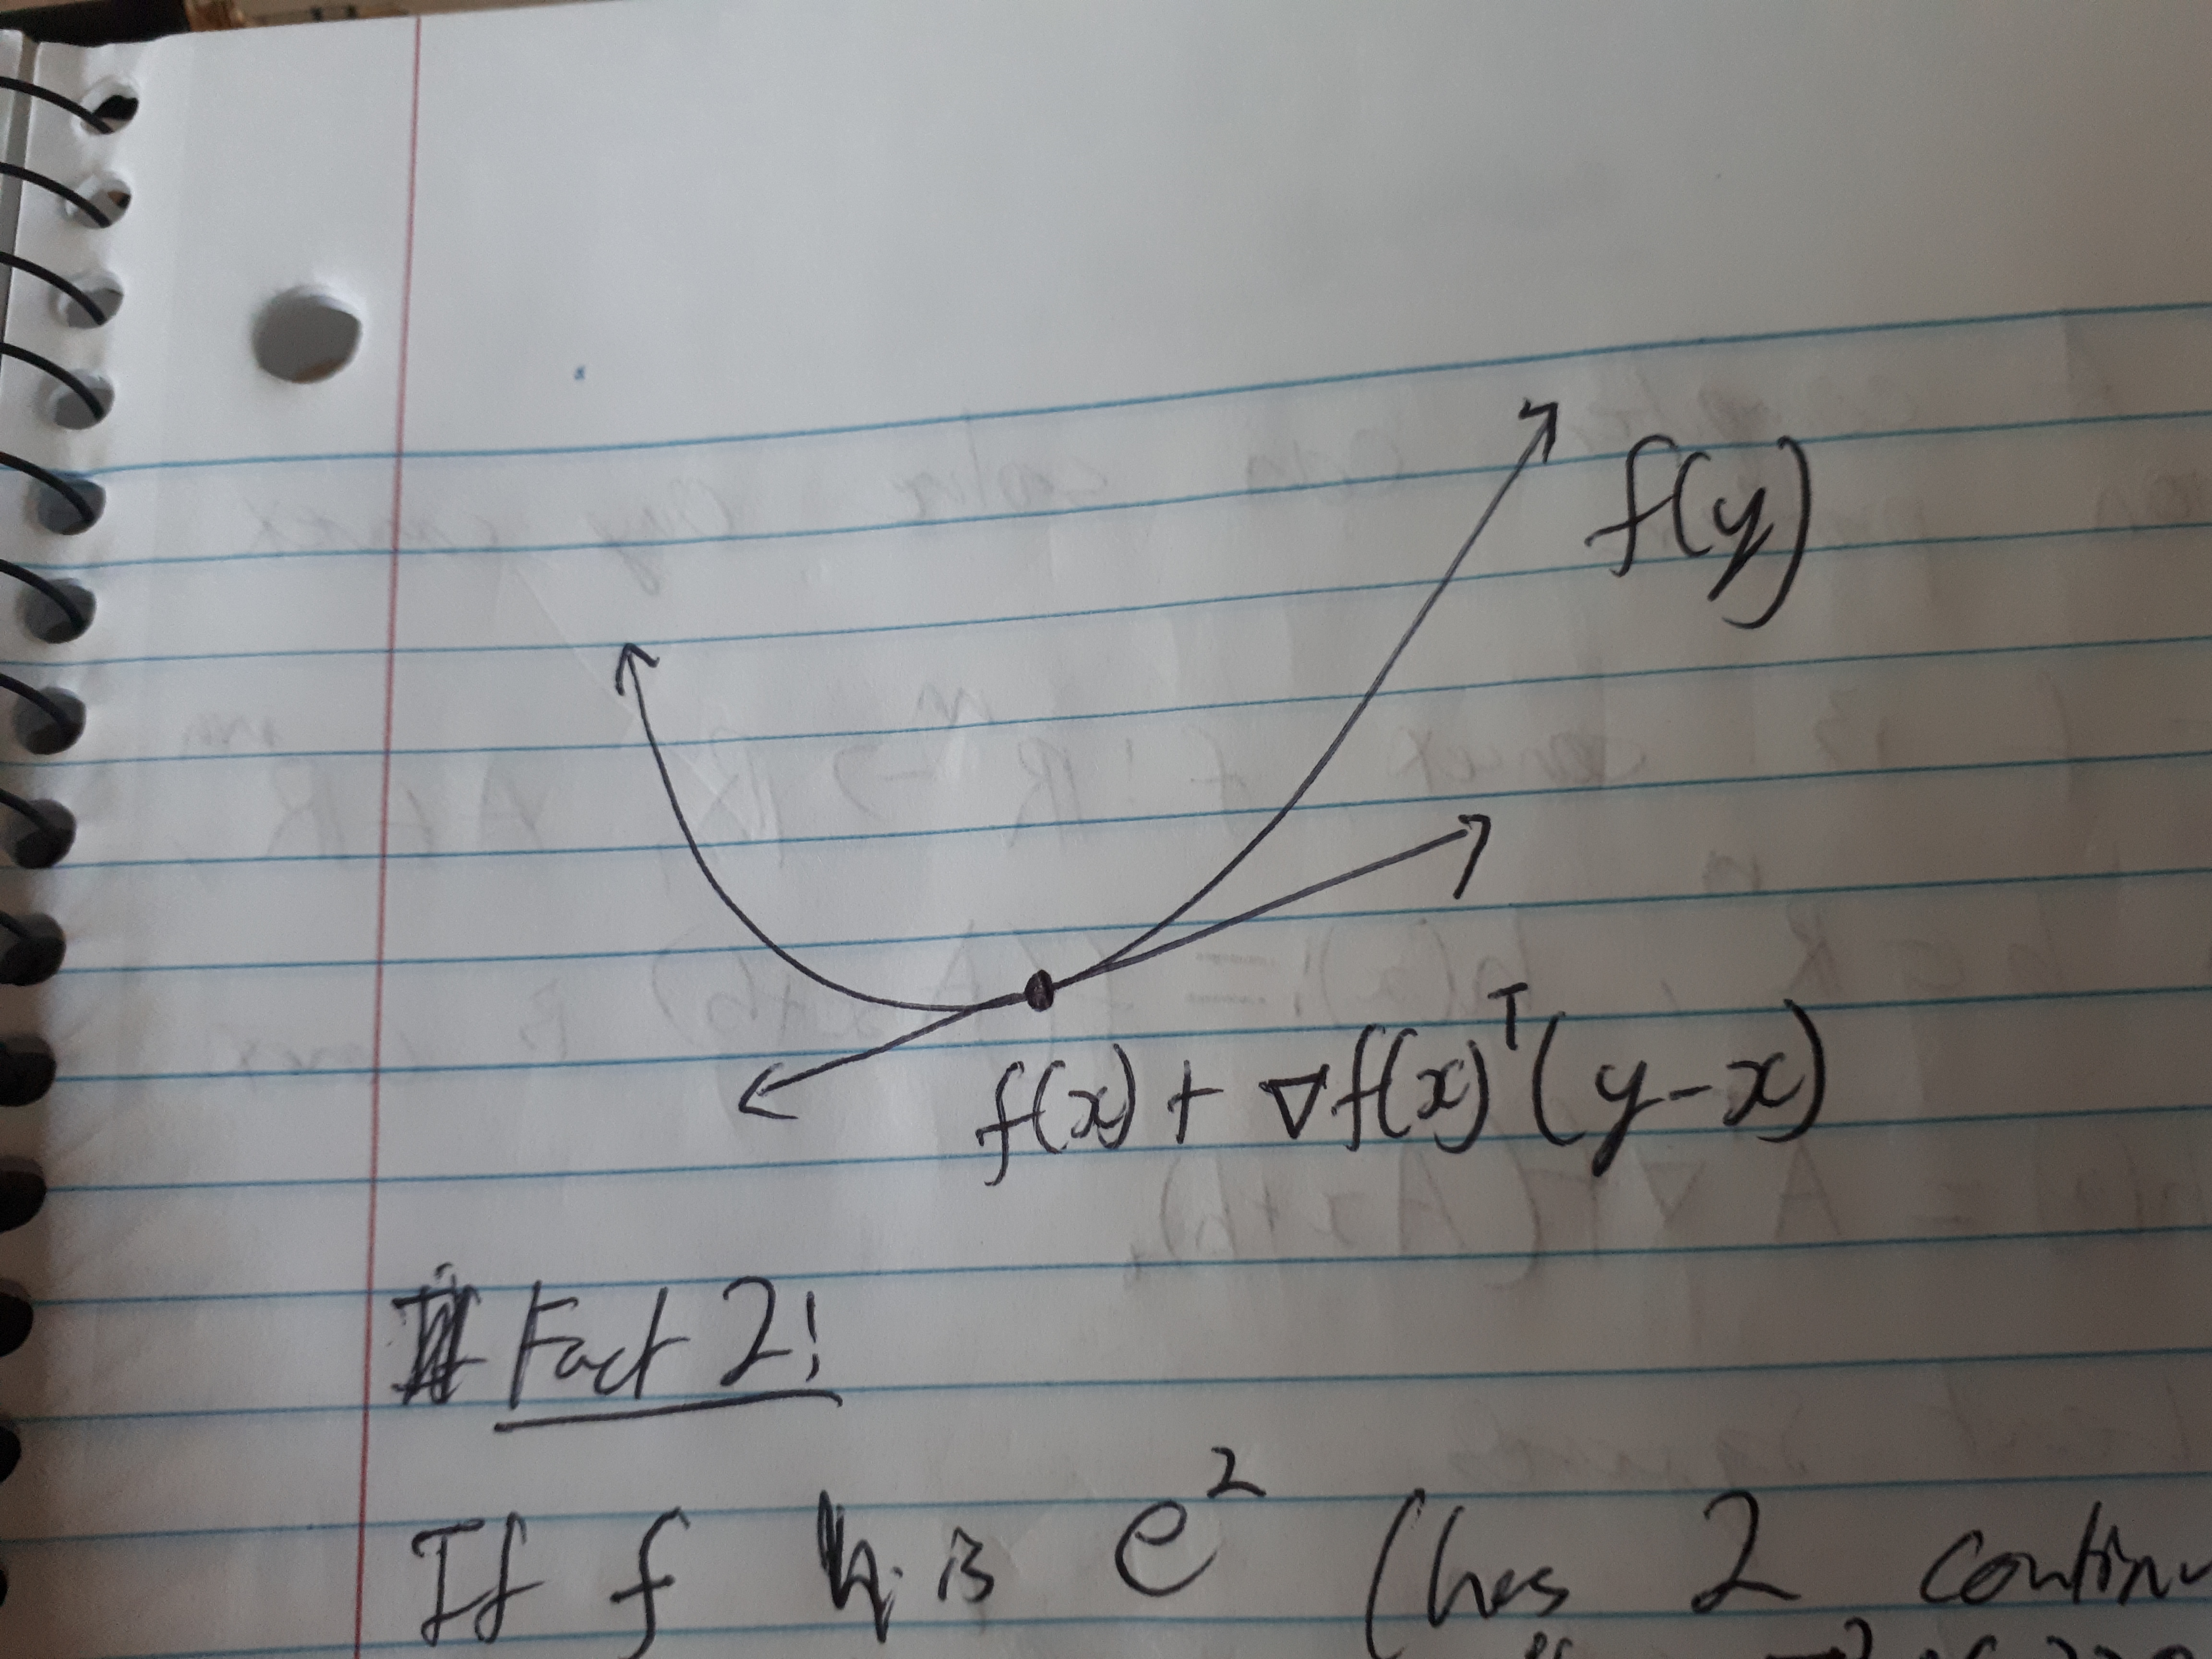 f(y)
f(x) + ∇f(x)ᵀ(y-x)
Fact 2!
If f is e² (has 2 continu